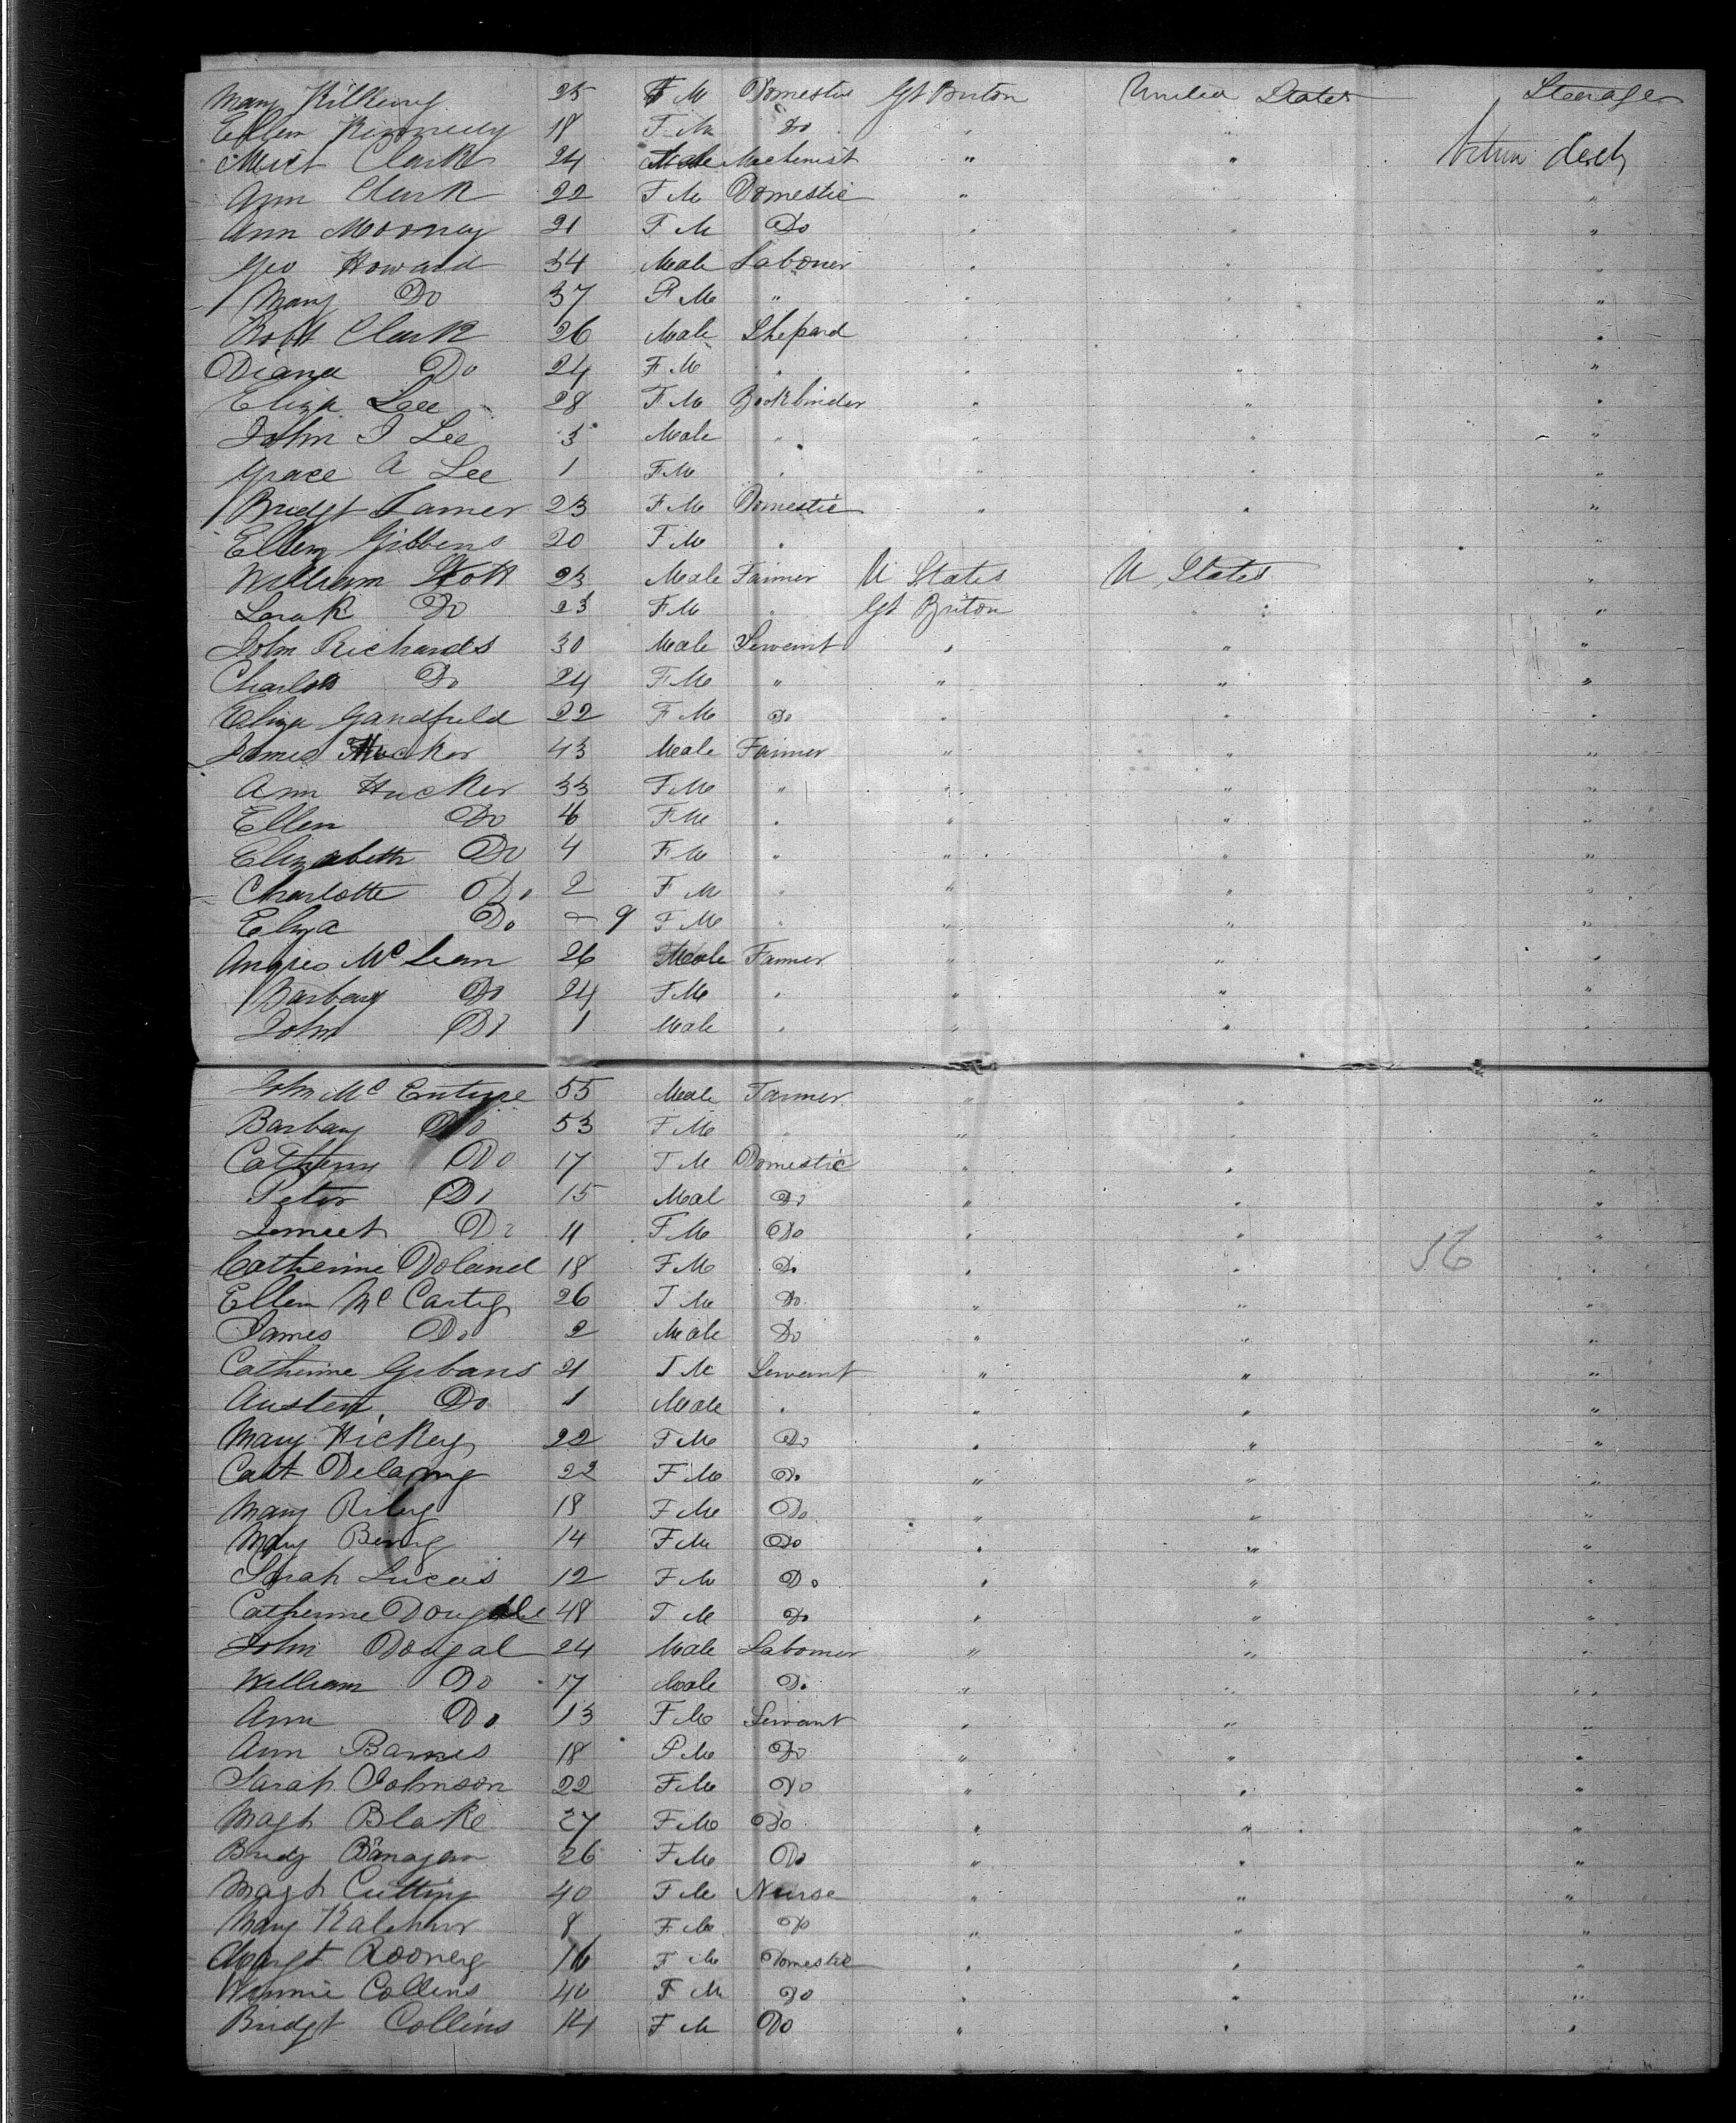 Mary Kilkeny 25 F M Domestic Gt Briton United States Steerage
Ellen Kennedy 18 F M Do " " Between deck
Micl Clark 24 Male Mechenist " "
Ann Clark 22 F M Domestic " " "
Ann Mooney 21 F M Do " " "
Geo Howard 34 Male Labourer " " "
Mary Do 37 F M " " " "
Robt Clark 26 Male Shepard " " "
Diana Do 24 F M " " " "
Eliza Lee 28 F M Bookbinder " " "
John J Lee 3 Male " " " "
Grace A Lee 1 F M " " " "
Bridgt 23 F M Domestic " " "
Ellen Gibbens 20 F M " "
William Stott 23 Male Farmer U States U States "
Sarah Do 23 F M " Gt Briton " " "
John Richards 30 Male Servant " " "
Charlott Do 24 F M " " " "
Eliza Gandfield 22 F M Do " " "
James Hucker 43 Male Farmer " " "
Ann Hucker 33 F M " " " "
Ellen Do 6 F M " " " "
Elizabeth Do 4 F M " " " "
Charlotte Do 2 F M " " " "
Eliza Do – 9 F M " " " "
Angus Mc Lean 26 Male Farmer " " "
Barbary Do 24 F M " " " "
John Do 1 Male " " " "
John Mc Entire 55 Male Farmer " " "
Barbary Do 53 F M " " " "
Cathern Do 17 F M Domestic " " "
Peter Do 15 Mal Do " " "
Do 11 F M Do " " "
Catherine Doland 18 F M Do " " 56 "
Ellen Mc Carty 26 F M Do " " "
James Do 2 Male Do " " "
Catherine Gibans 21 F M Servant " " "
Austen Do 1 Male " " " "
Mary Hickey 22 F M Do " " "
Catt Delaney 22 F M Do " " "
Mary Riley 18 F M Do " " "
Mary 14 F M Do " " "
Sarah Lucas 12 F M Do " " "
Catherine Dougal 48 F M Do " " "
John Dougal 24 Male Labourer " " "
William Do 17 Male Do " " "
Ann Do 13 F M Servant " " "
Ann Barnes 18 F M Do " " "
Sarah Johnson 22 F M Do " " "
Magt Blake 27 F M Do " " "
Bridg 26 F M Do " " "
Magt Cutting 40 F M Nurse " " "
Mary 8 F M Do " " "
Margt Rooney 16 F M Domestic " " "
Winnie Collins 40 F M Do " " "
Bridgt Collins 14 F M Do " " "